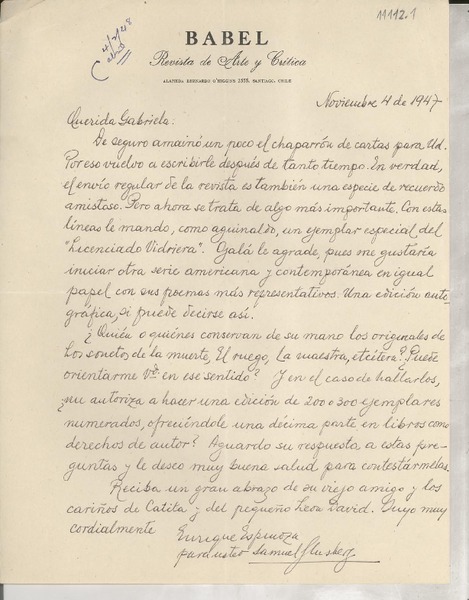 11112.1
4/2/48
BABEL
Revista de Arte y Crítica
ALAMEDA BERNARDO O'HIGGINS 1335. SANTIAGO. CHILE
Noviembre 4 de 1947
Querida Gabriela:
De seguro amainó un poco el chaparrón de cartas para Ud.
Por eso vuelvo a escribirle después de tanto tiempo. En verdad,
el envío regular de la revista es también una especie de recuerdo
amistoso. Pero ahora se trata de algo más importante. Con estas
líneas le mando, como aguinaldo, un ejemplar especial del
"Licenciado Vidriera". Ojalá le agrade, pues me gustaría
iniciar otra serie americana y contemporánea en igual
papel con sus poemas más representativos. Una edición auto-
gráfica, si puede decirse así.
¿Quién o quiénes conservan de su mano los originales de
Los sonetos de la muerte, El ruego, La maestra, etcétera? ¿Puede
orientarme Vd. en ese sentido? Y en el caso de hallarlos,
¿me autoriza a hacer una edición de 200 o 300 ejemplares
numerados, ofreciéndole una décima parte en libros como
derechos de autor? Aguardo su respuesta a estas pre-
guntas y le deseo muy buena salud para contestármelas.
Reciba un gran abrazo de su viejo amigo y los
cariños de Catita y del pequeño León David. Suyo muy
cordialmente
Enrique Espinoza
para usted Samuel Glusberg